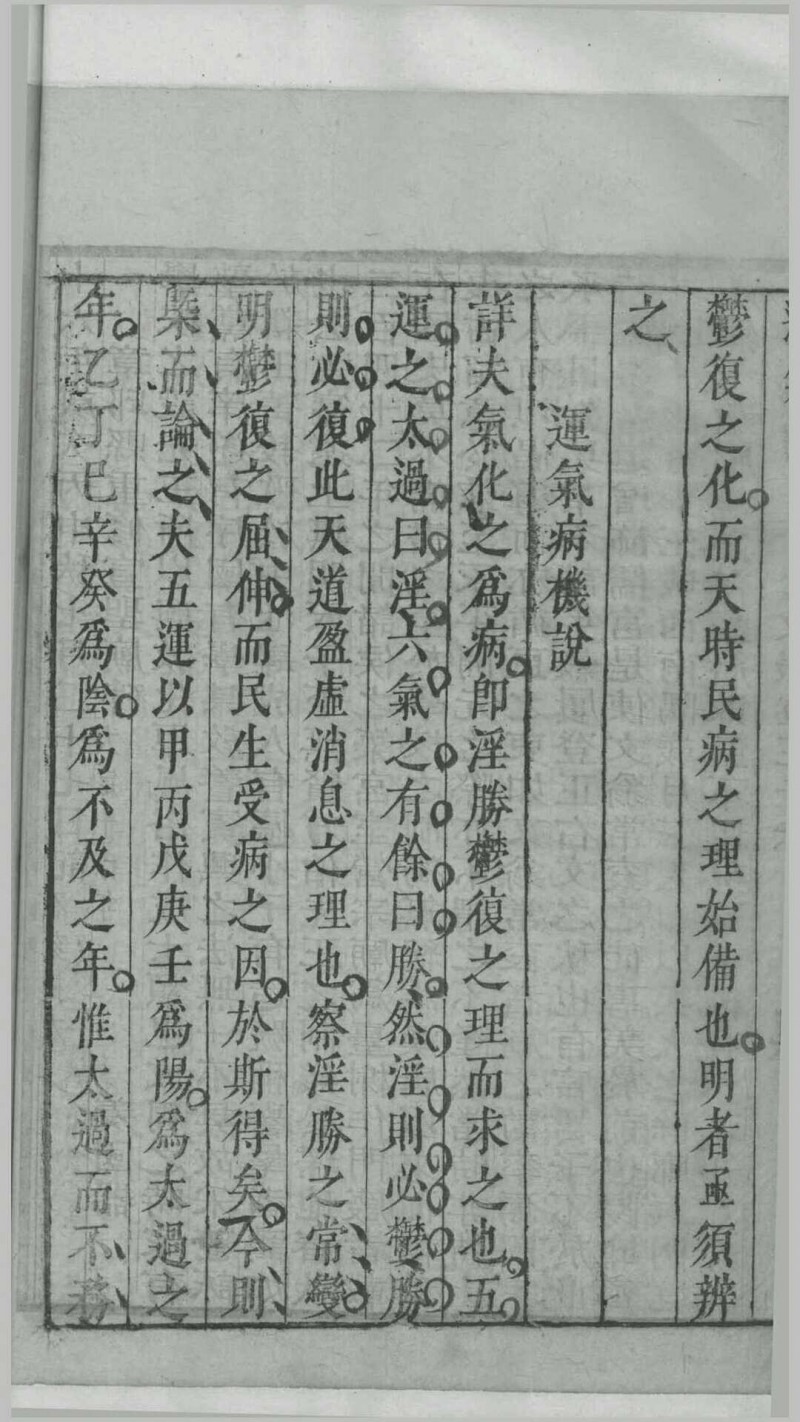 鬱復之化而天時民病之理始備也明者亟須辨
之
運氣病機說
詳夫氣化之爲病即淫勝鬱復之理而求之也五
運之太過曰淫六氣之有餘曰勝然淫則必鬱勝
則必復此天道盈虛消息之理也察淫勝之常變
明鬱復之屈伸而民生受病之因於斯得矣今則
槩而論之夫五運以甲丙戊庚壬爲陽爲太過之
年乙丁巳辛癸爲陰爲不及之年惟太過而不務